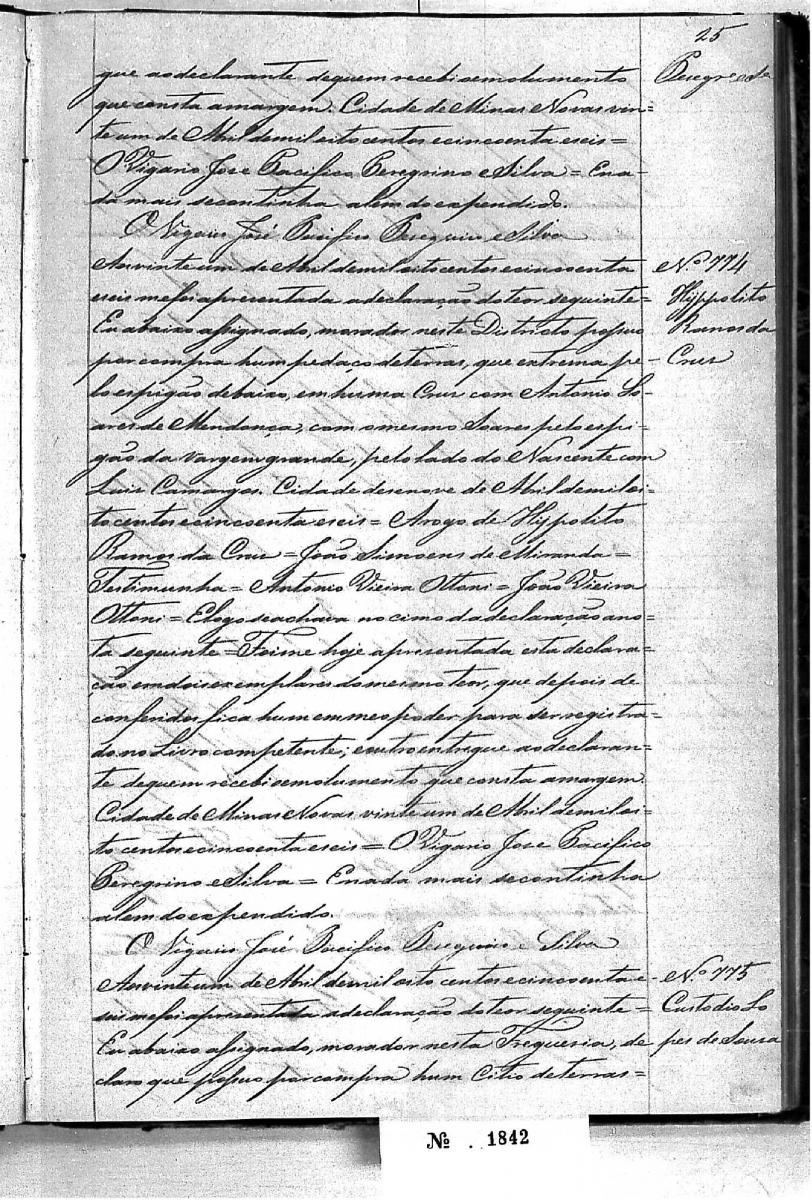 25
Peregr.e S.a
que ao declarante de quem recebi o emolumento
que consta a margem. Cidade de Minas Novas vin-
te um de Abril de mil oito centos e cincoenta e seis =
O Vigario Jose Pacifico Peregrino e Silva = E na-
da mais se continha alem do expendido.
O Vigario José Pacifico Peregrino e Silva
Nº 774
Hyppolito
Ramos da
Cruz
Aos vinte um de Abril de mil oito centos e cincoenta
e seis me foi apresentada a declaração do teor seguinte =
Eu abaixo assignado, morador neste Districto possuo
por compra hum pedaço de terras, que extrema pe-
lo espigão debaixo, em huma Cruz com Antonio So-
ares de Mendonça, com o mesmo Soares pelo espi-
gão da vargem grande, pelo lado do Nascente com
Luis Camargos. Cidade desenove de Abril de mil oi-
to centos e cincoenta e seis = Arogo de Hyppolito
Ramos da Cruz = João Simoens de Miranda =
Testimunha = Antonio Vieira Ottoni = João Vieira
Ottoni = E logo se achava no cimo da declaração a no-
ta seguinte = Foi me hoje apresentada esta declara-
ção em dois exemplares do mesmo teor, que depois de
conferidos fica hum em meo poder para ser registra-
do no Livro competente; e outro entregue ao declaran-
te de quem recebi o emolumento que consta a margem.
Cidade de Minas Novas vinte um de Abril de mil oi-
to centos e cincoenta e seis = O Vigario Jose Pacifico
Peregrino e Silva = E nada mais se continha
alem do expendido.
O Vigario José Pacifico Peregrino e Silva
Nº 775
Custodio Lo
pes de Sousa
Aos vinte um de Abril de mil oito centos e cincoenta e
seis me foi apresentada a declaração do teor seguinte =
Eu abaixo assignado, morador nesta Freguesia, de
claro que possuo por compra hum Citio de terras =
№ . 1842